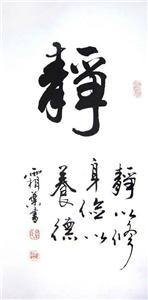 靜
靜以修
身儉以
養德
霜葉書